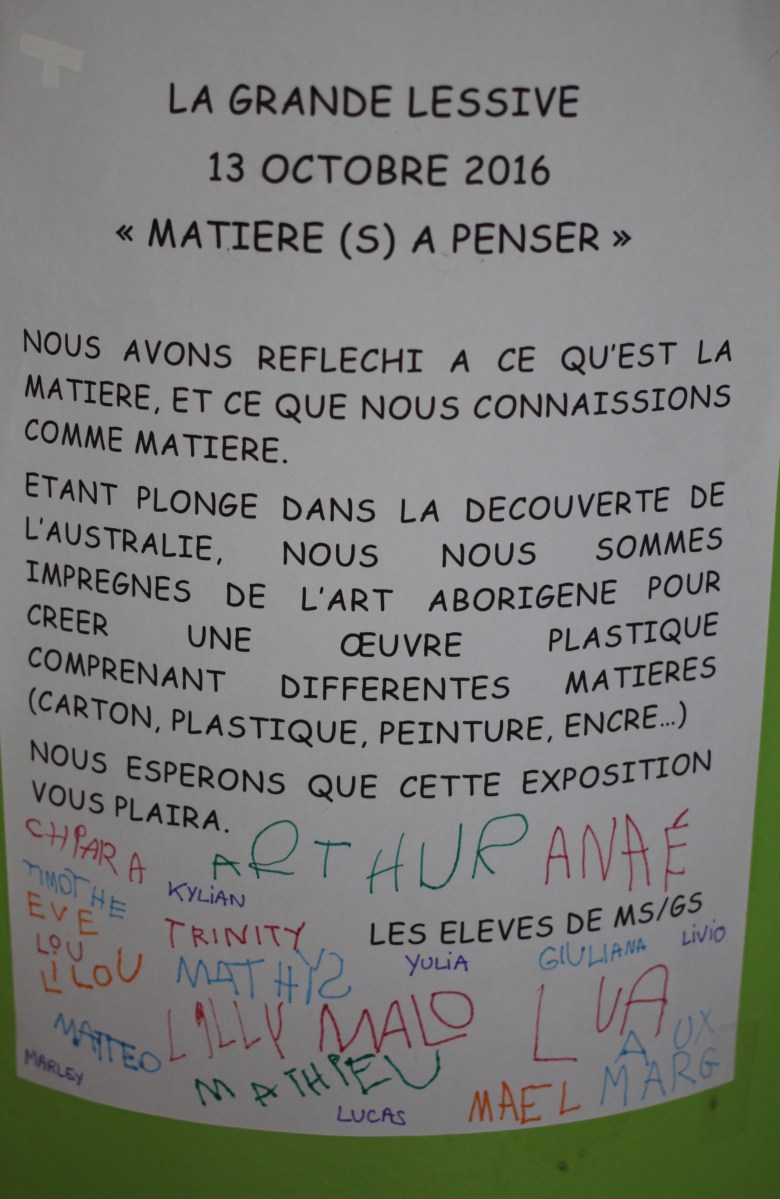 LA GRANDE LESSIVE
13 OCTOBRE 2016
« MATIERE (S) A PENSER »
NOUS AVONS REFLECHI A CE QU'EST LA
MATIERE, ET CE QUE NOUS CONNAISSIONS
COMME MATIERE.
ETANT PLONGE DANS LA DECOUVERTE DE
L'AUSTRALIE, NOUS NOUS SOMMES
IMPREGNES DE L'ART ABORIGENE POUR
CREER UNE ŒUVRE PLASTIQUE
COMPRENANT DIFFERENTES MATIERES
(CARTON, PLASTIQUE, PEINTURE, ENCRE...)
NOUS ESPERONS QUE CETTE EXPOSITION
VOUS PLAIRA.
ARTHUR ANAÉ
TIMOTHE KYLIAN
EVE TRINITY LES ELEVES DE MS/GS
LOU MATHYS YULIA GIULIANA LIVIO
LILOU
LILLY MALO LUA
MATTEO A UX
MARLEY MATHIEU MAEL MARG
LUCAS